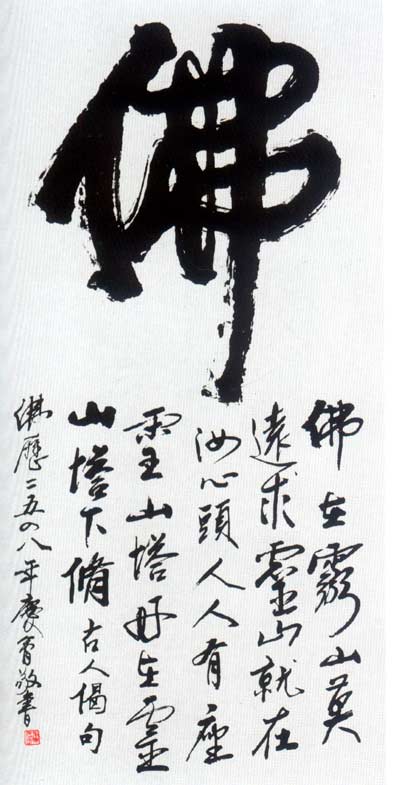 佛
佛在靈山莫
遠求靈山就在
汝心頭人人有座
靈山塔好在靈
山塔下脩古人偈句
佛歷二五四八年慶敬書